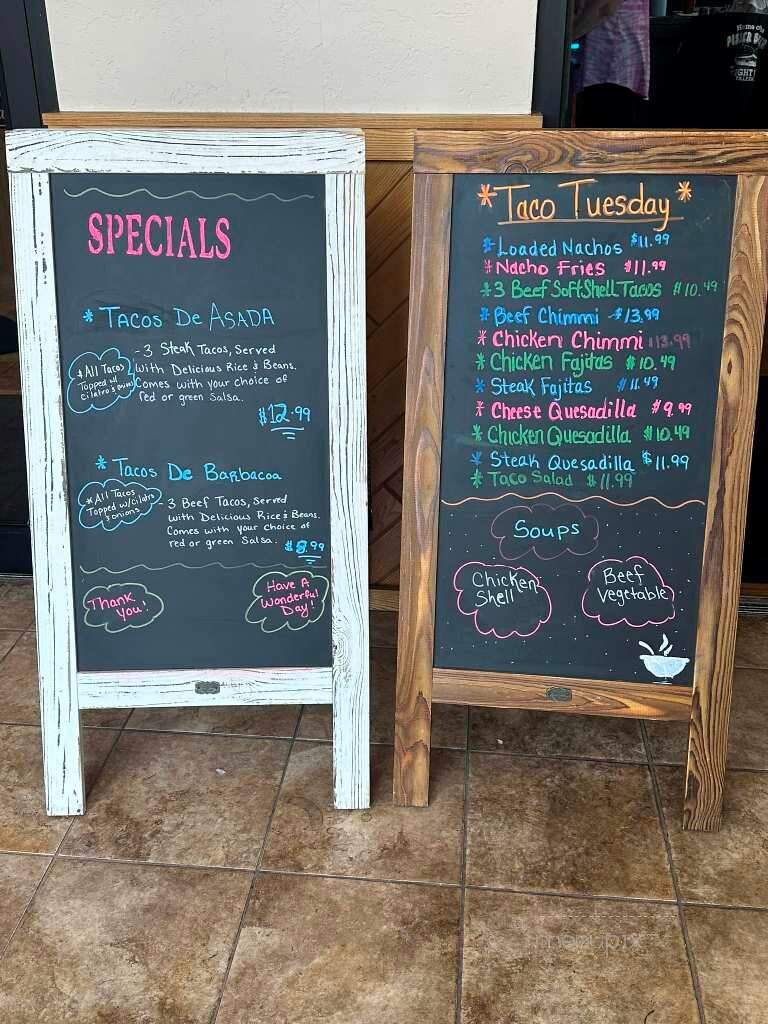 SPECIALS
* Tacos De Asada
- 3 Steak Tacos, Served
with Delicious Rice & Beans.
Comes with your choice of
red or green Salsa.
* All Tacos
Topped w/
$12.99
* Tacos De Barbacoa
- 3 Beef Tacos, Served
with Delicious Rice & Beans.
Comes with your choice of
red or green Salsa.
* All Tacos
Topped w/cilatro
& onions
$8.99
Thank
You!
Have A
Wonderful
Day!
* Taco Tuesday *
* Loaded Nachos $11.99
* Nacho Fries $11.99
* 3 Beef Soft Shell Tacos $10.49
* Beef Chimmi - $13.99
* Chicken Chimmi $13.99
* Chicken Fajitas $10.49
* Steak Fajitas $11.49
* Cheese Quesadilla $9.99
* Chicken Quesadilla $10.49
* Steak Quesadilla $11.99
* Taco Salad $11.99
Soups
Chicken
Shell
Beef
Vegetable